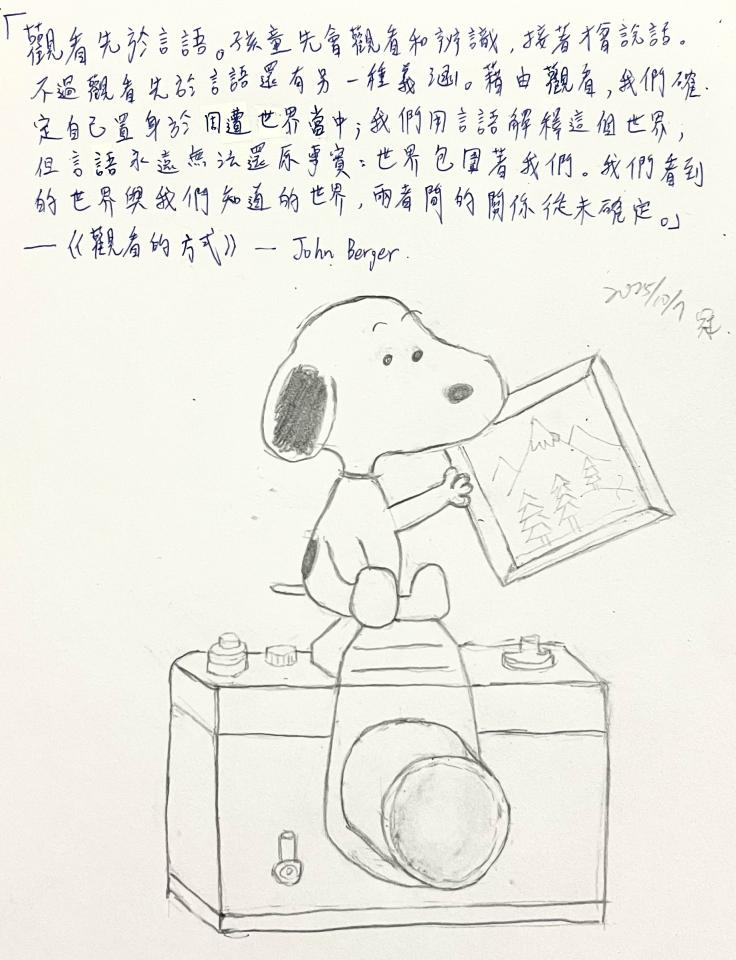 「觀看先於言語。孩童先會觀看和辨識,接著才會說話。
不過觀看先於言語還有另一種義涵。藉由觀看,我們確
定自己置身於周遭世界當中;我們用言語解釋這個世界,
但言語永遠無法還原事實:世界包圍著我們。我們看到
的世界與我們知道的世界,兩者間的關係從未確定。」
—《觀看的方式》— John Berger.
2025/10/7
冠.